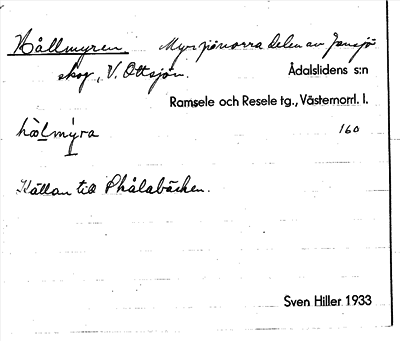 Hållmyren. Myr på norra delen av Jansjö
skog, V. Ottsjön.
Ådalslidens s:n
Ramsele och Resele tg., Västernorrl. l.
hòlmýra 160
Källan till Phålabäcken.
Sven Hiller 1933